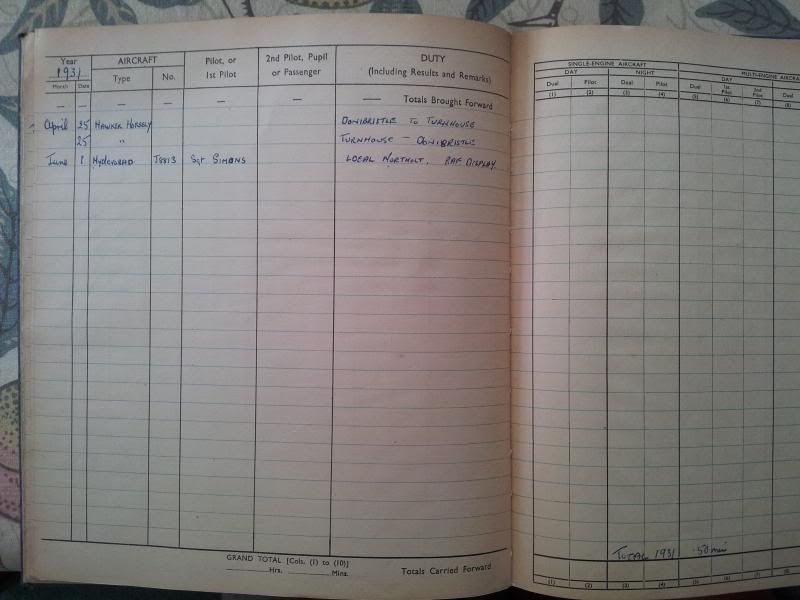 Year
1931
AIRCRAFT
Pilot, or
1st Pilot
2nd Pilot, Pupil
or Passenger
DUTY
(Including Results and Remarks)
Month Date Type No.
— — — — — — Totals Brought Forward
April 25 HAWKER HORSELY DONIBRISTLE TO TURNHOUSE
25 " TURNHOUSE — DONIBRISTLE
June 1 Hyderabad J8813 Sgt SIMONS LOCAL NORTHOLT. RAF DISPLAY.
GRAND TOTAL [Cols. (1) to (10)]
Hrs. Mins.
Totals Carried Forward
SINGLE-ENGINE AIRCRAFT
MULTI-ENGINE AIRCRA
DAY NIGHT DAY
Dual Pilot Dual Pilot Dual 1st Pilot 2nd Pilot Dual
(1) (2) (3) (4) (5) (6) (7) (8)
TOTAL 1931 50 min
(1) (2) (3) (4) (5) (6) (7) (8)